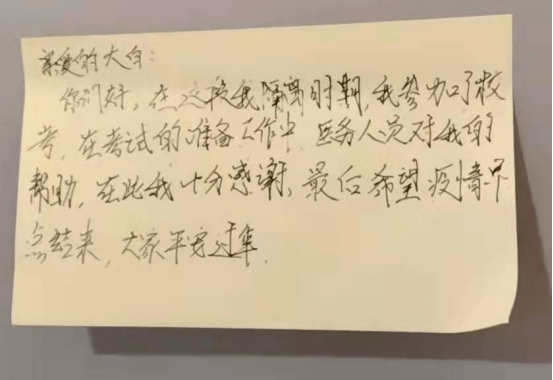 亲爱的大白：
你们好，在这段我隔离时期，我参加了校
考，在考试的准备工作中，医务人员对我的
帮助，在此我十分感谢，最后希望疫情早
点结束，大家平安过年.